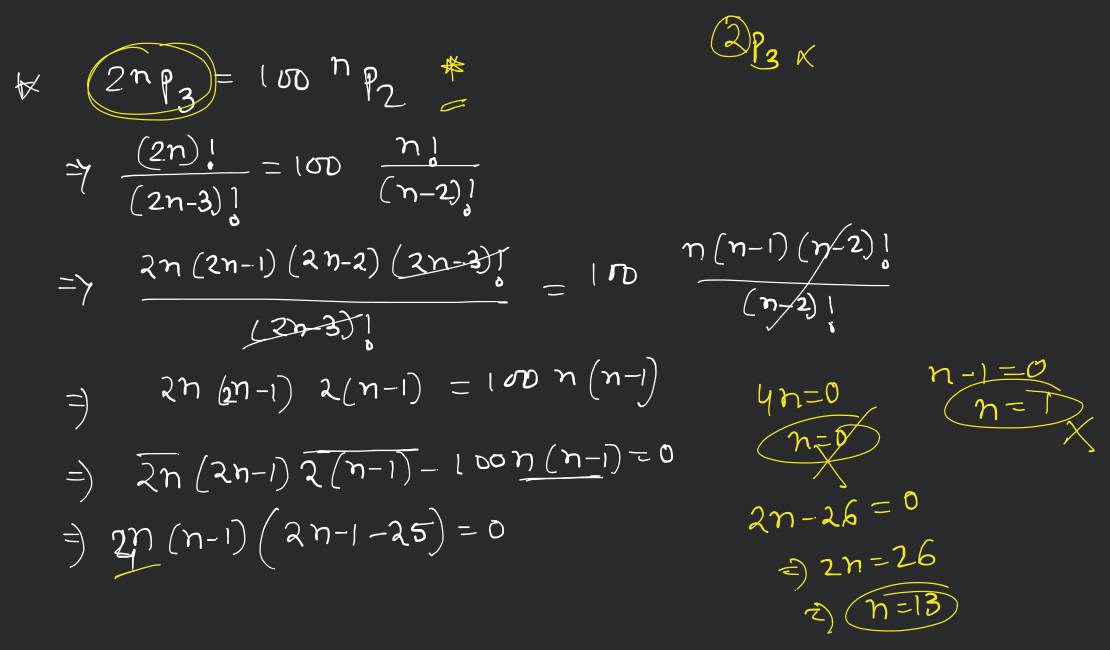 2n P3 = 100 n P2 *
2 P3 ×
⇒ (2n)! / (2n-3)! = 100 n! / (n-2)!
⇒ 2n (2n-1) (2n-2) (2n-3)! / (2n-3)! = 100 n (n-1) (n-2)! / (n-2)!
⇒ 2n (2n-1) 2(n-1) = 100 n (n-1)
⇒ 2n (2n-1) 2(n-1) - 100n (n-1) = 0
⇒ 4n (n-1) (2n-1-25) = 0
4n=0
n=0
n-1=0
n=1
2n-26=0
⇒ 2n=26
⇒ n=13